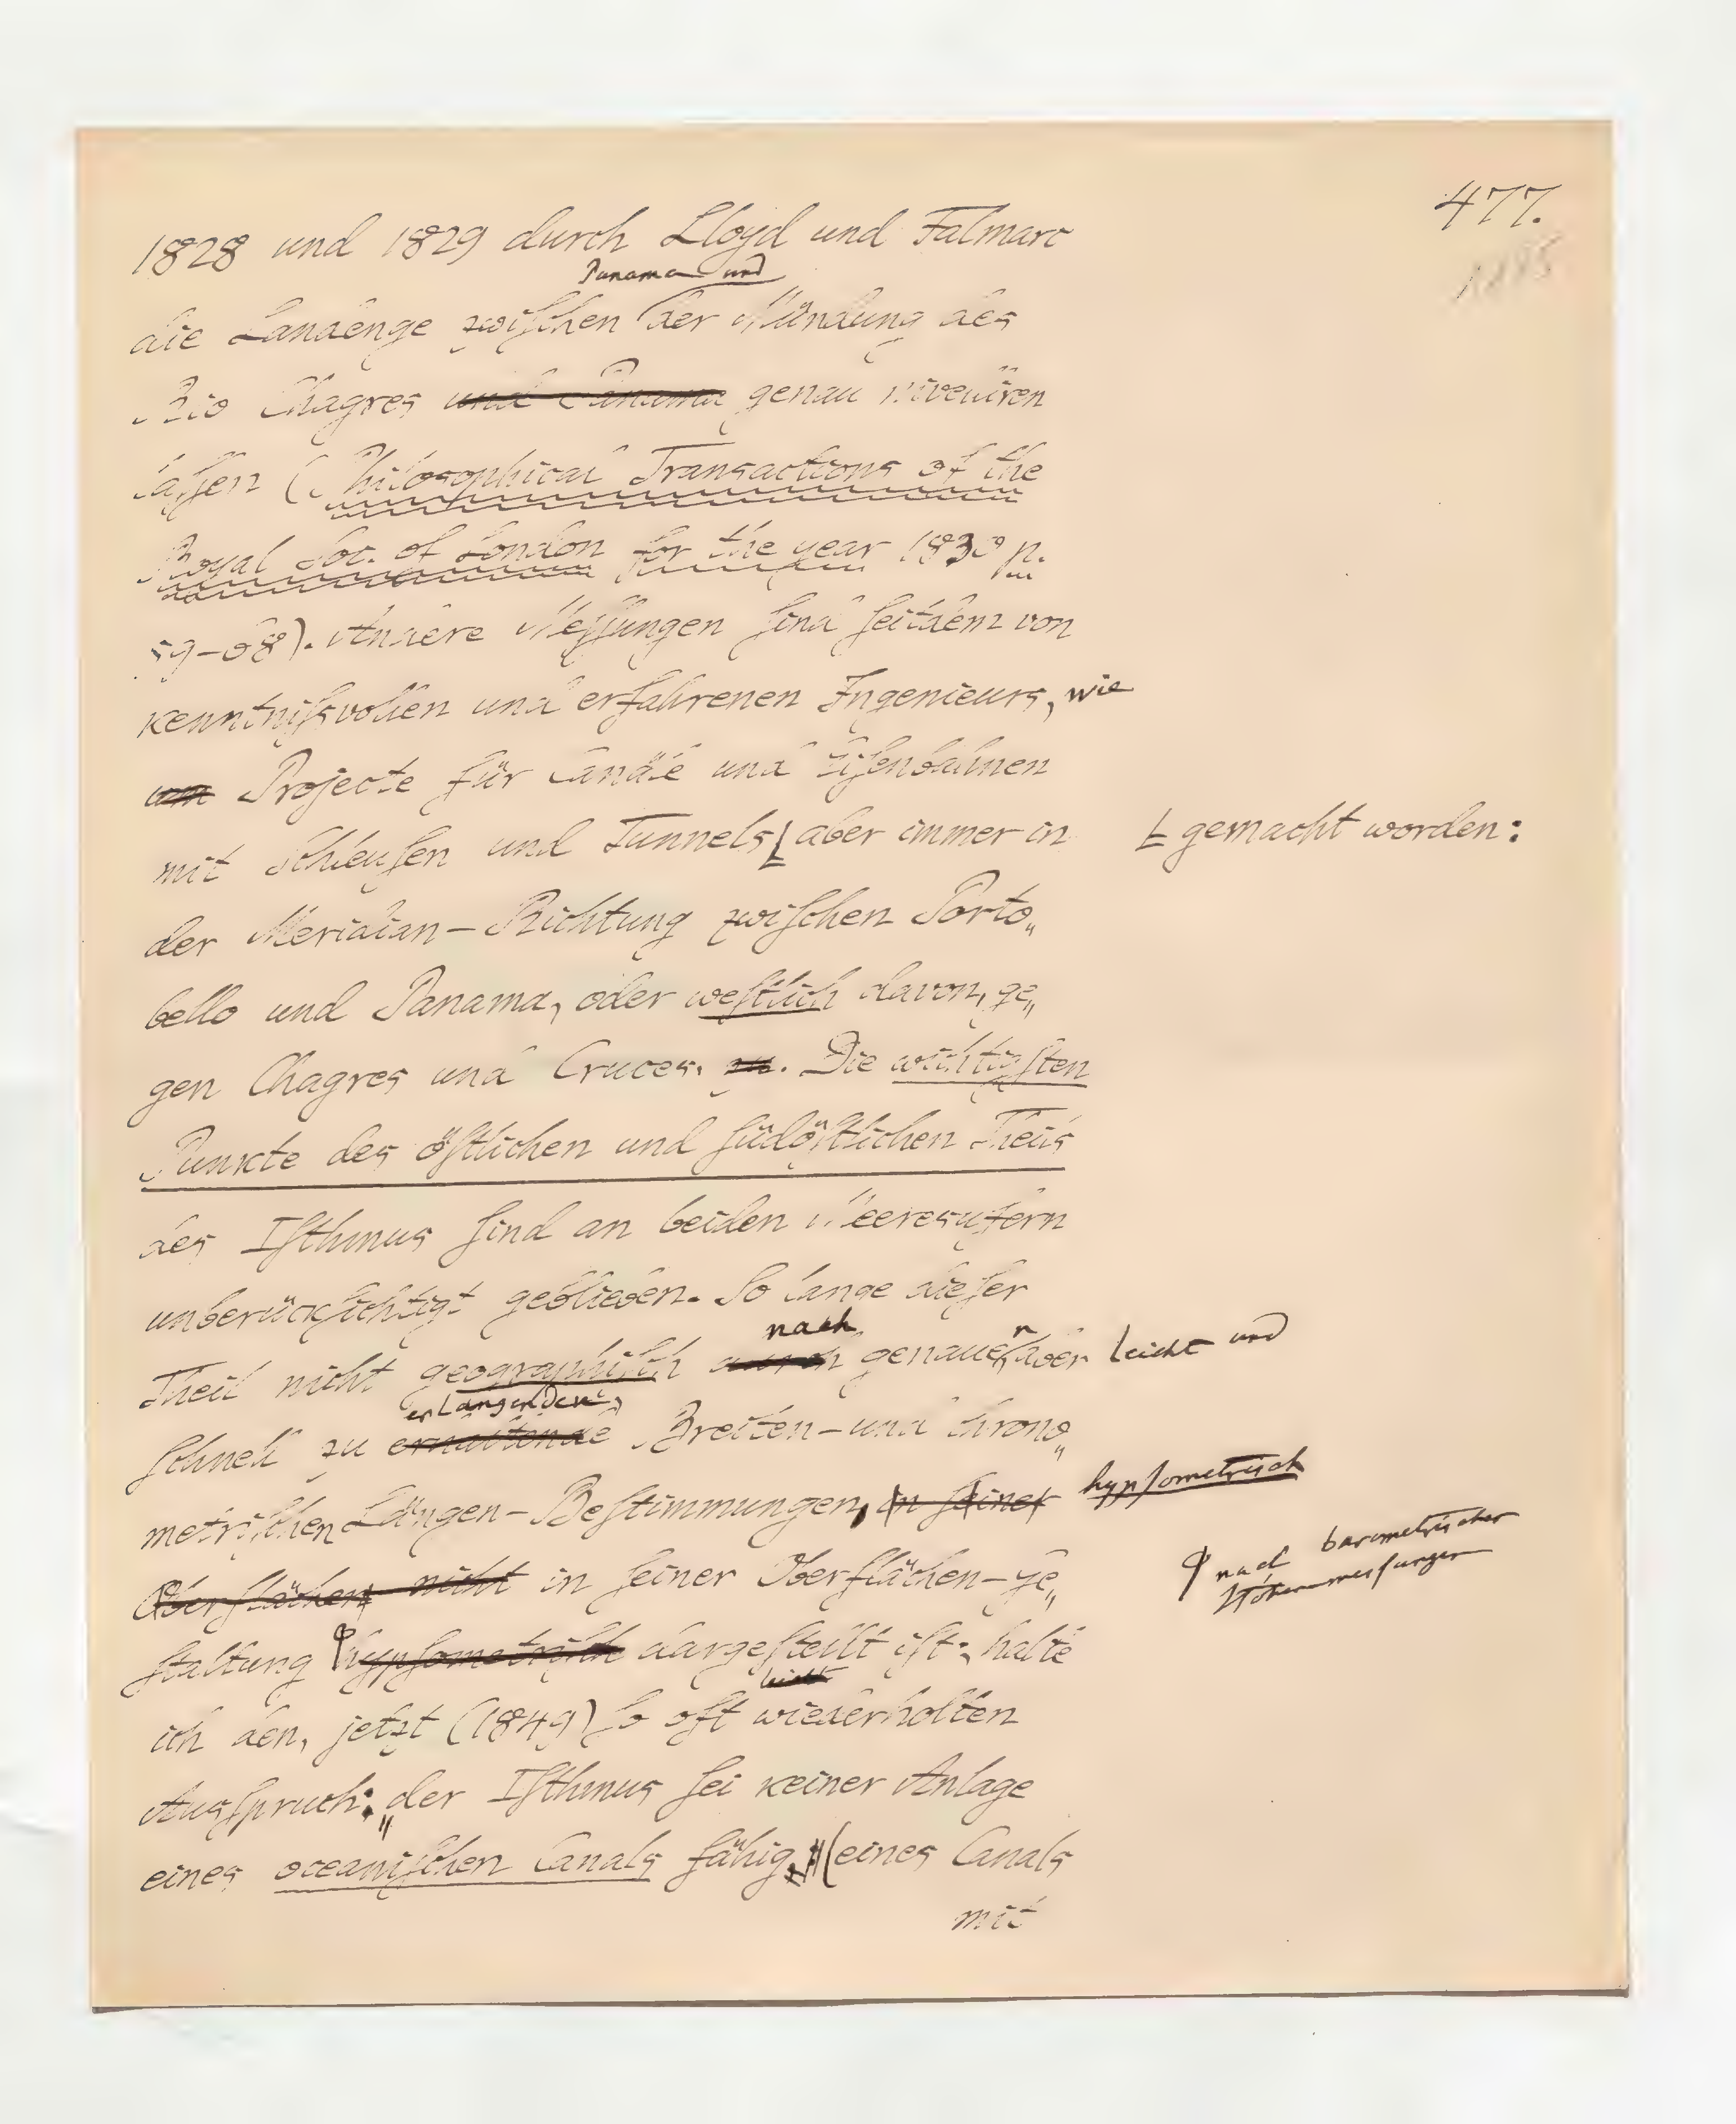 477.
1885
1828 und 1829 durch Lloyd und Falmarc
Panama und
die Landenge zwiſchen der Mündung des
Rio Chagres und Panama genau nivelliren
laſſen (Philosophical Transactions of the
Royal Soc. of London for the year 1830 p.
59–68). Andere Meſſungen ſind ſeitdem von
kenntniſsvollen und erfahrenen Ingenieurs, wie
um Projecte für Canäle und Eiſenbahnen
mit Schleuſen und Tunnels aber immer in
gemacht worden:
der Meridian–Richtung zwiſchen Porto„
bello und Panama, oder weſtlich davon, ge„
gen Chagres und Cruces. zu. Die wichtigſten
Punkte des öſtlichen und ſüdöſtlichen Theils
des Iſthmus ſind an beiden Meeresufern
unberückſichtigt geblieben. So lange dieſer
nach n
Theil nicht geographiſch durch genaue, aber leicht und
erlangenden
ſchnell zu erhaltende Breiten–und chrono„
metriſchen Längen–Beſtimmungen, in ſeiner hypſometriſch
Oberflächen nicht in ſeiner Oberflächen–ge„
nach barometriſcher
Höhenmeſſungen
ſtaltung hypſometriſch dargeſtellt iſt; halte
leicht
ich den, jetzt (1849) ſo oft wiederholten
Ausſpruch: „der Iſthmus ſei keiner Anlage
eines oceaniſchen Canals fähig" (eines Canals
mit